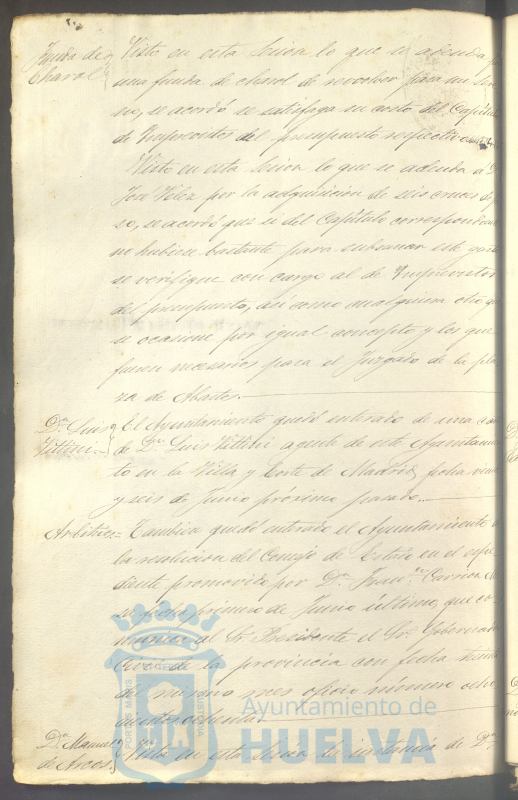 Funda de
Charol
Visto en esta sesion lo que se adeuda por
una funda de charol de revolver para un sere
no, se acordó se satisfaga su costo del Capítulo
de Imprevistos del presupuesto respectivo
Visto en esta sesion lo que se adeuda a Dn
José Velez por la adquisicion de seis cruces de
so, se acordó que si del Capítulo correspondiente
no hubiere bastante para subsanar este gasto
se verifique con cargo al de Imprevistos
del presupuesto, así como cualquiera otro que
se ocasione por igual concepto y los que
fueren necesarios para el Juzgado de la pla
za de Abastos.
Dn Luis
Vittini
El Ayuntamiento quedó enterado de una carta
de Dn Luis Vittini agente de este Ayuntamien
to en la Villa y Corte de Madrid, fecha veinte
y seis de Junio próximo pasado.
Arbitrios.=
Tambien quedó enterado el Ayuntamiento de
la resolucion del Consejo de Estado en el espe
diente promovido por Dn Franco Carrion
su fecha primero de Junio último, que co
munica al Sr. Presidente el Sr. Gobernador
Civil de la provincia con fecha
del mismo mes oficio número ocho
cientos ochenta.
Dn Manuel
de Arcos.
Vista en esta sesion la instancia de Dn
PORTUS MARIS
Ayuntamiento de
HUELVA